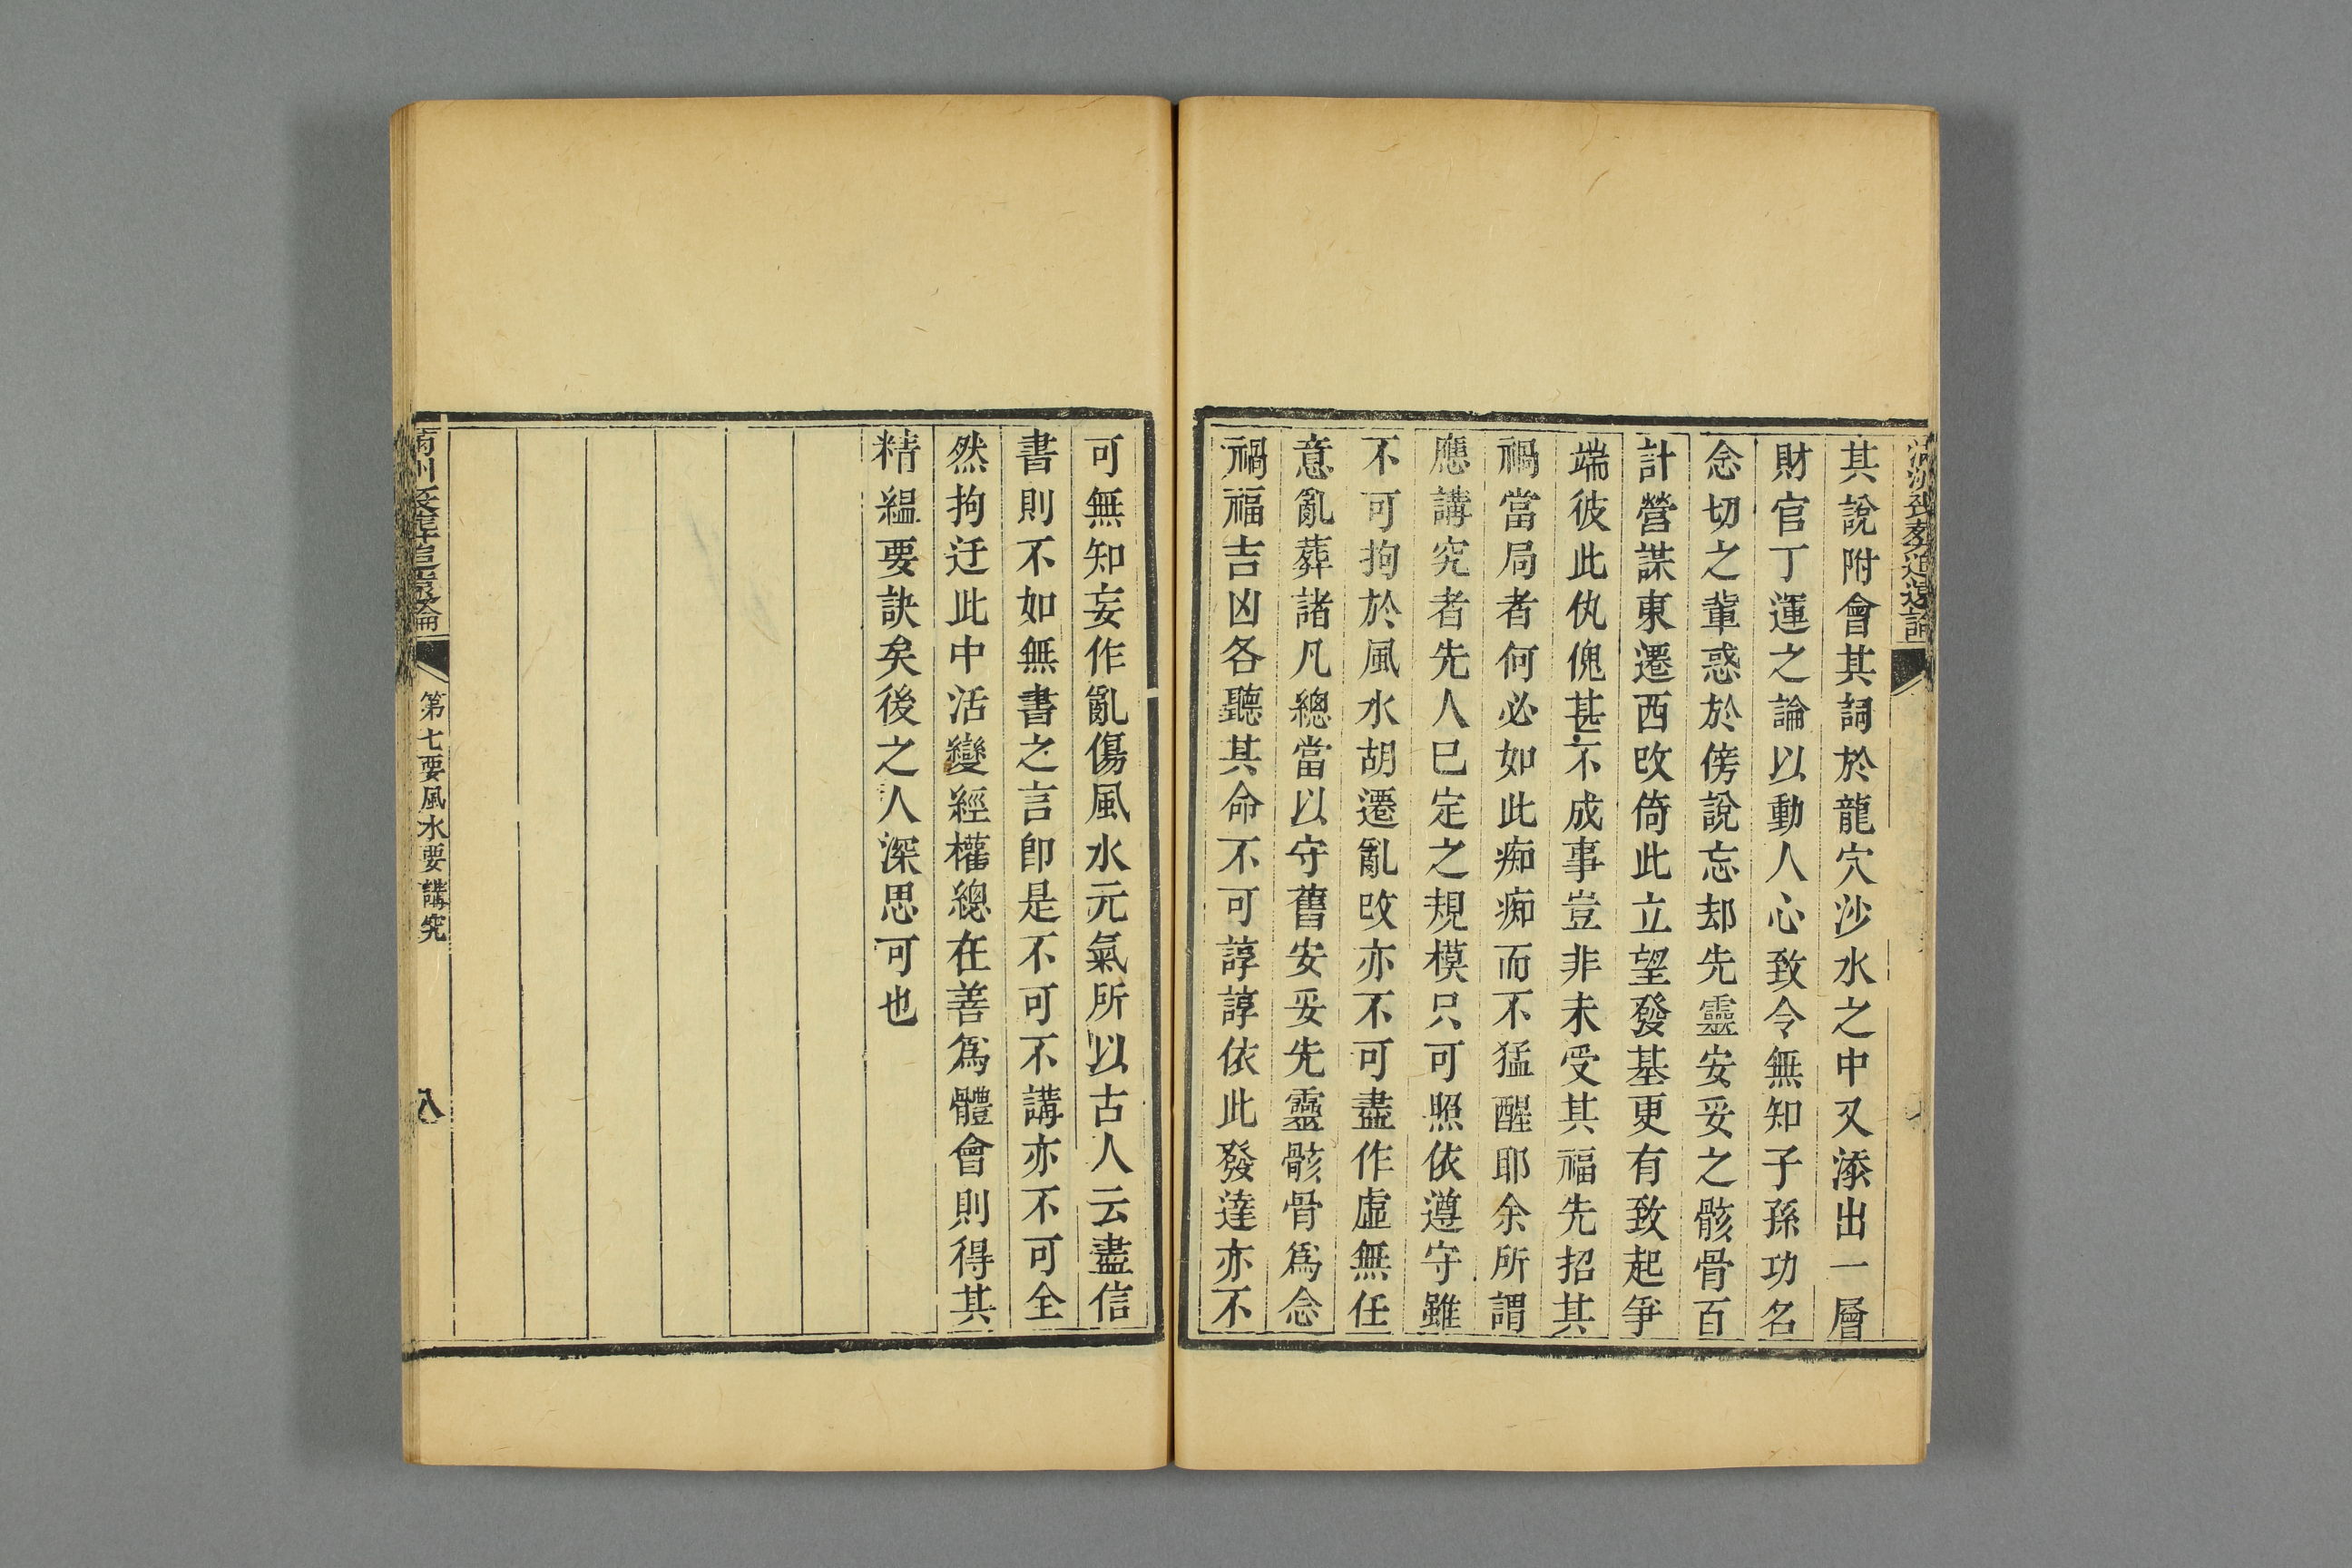 其說附會其詞於龍穴沙水之中又添出一層
財官丁運之論以動人心致令無知子孫功名
念切之軰惑於傍說忘却先靈安妥之骸骨百
計營謀東遷西改倚此立望發基更有致起爭
端彼此仇傀甚不成事豈非未受其福先招其
禍當局者何必如此痴痴而不猛醒耶余所謂
應講究者先人已定之規模只可照依遵守雖
不可拘於風水胡遷亂改亦不可盡作虛無任
意亂葬諸凡總當以守舊安妥先靈骸骨爲念
禍福吉凶各聽其命不可諄諄依此發達亦不
可無知妄作亂傷風水元氣所以古人云盡信
書則不如無書之言即是不可不講亦不可全
然拘迂此中活變經權總在善爲體會則得其
精緼要訣矣後之人深思可也
第七要風水要講究
八